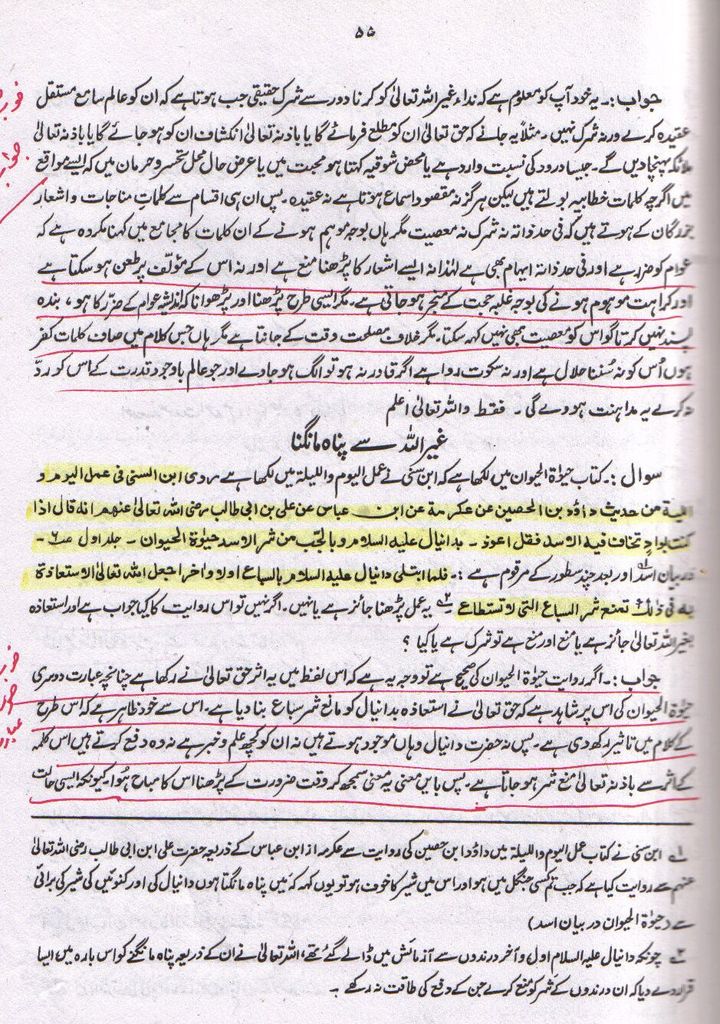 ۵۵
جواب:۔ یہ خود آپ کو معلوم ہے کہ نداء غیر اللہ تعالیٰ کو کرنا دور سے شرک حقیقی جب ہوتا ہے کہ ان کو عالم سامع مستقل
عقیدہ کرے ورنہ شرک نہیں۔ مثلاً یہ جانے کہ حق تعالیٰ ان کو مطلع فرمائے گا یا باذنہ تعالیٰ انکشاف ان کو ہو جائے گا یا باذنہ تعالیٰ
ملائکہ پہنچا دیں گے۔ جیسا درود کی نسبت وارد ہے یا محض شوقیہ کہتا ہو محبت میں یا عرض حال محل تحسر و حرمان میں کہ ایسے مواقع
میں اگرچہ کلمات خطابیہ بولتے ہیں لیکن ہرگز نہ مقصود اسماع ہوتا ہے نہ عقیدہ۔ پس ان ہی اقسام سے کلمات مناجات و اشعار
بزرگان کے ہوتے ہیں کہ فی حد ذاتہ نہ شرک نہ معصیت مگر ہاں بوجہ موہم ہونے کے ان کلمات کا مجامع میں کہنا مکروہ ہے کہ
عوام کو ضرر ہے اور فی حد ذاتہ ایہام بھی ہے لہٰذا نہ ایسے اشعار کا پڑھنا منع ہے اور نہ اس کے مؤلف پر طعن ہو سکتا ہے
اور کراہت موہوم ہونے کی بوجہ غلبہ محبت کے منجبر ہو جاتی ہے۔ مگر ایسی طرح پڑھنا اور پڑھوانا کہ اندیشہ عوام کے ضرر کا ہو، بندہ
پسند نہیں کرتا گو اس کو معصیت بھی نہیں کہہ سکتا۔ مگر خلاف مصلحت وقت کے جانتا ہے مگر ہاں جس کلام میں صاف کلمات کفر
ہوں اُس کو نہ سُننا حلال ہے اور نہ سکوت روا ہے اگر قادر نہ ہو تو الگ ہو جاوے اور جو عالم باوجود قدرت کے اس کو ردّ
نہ کرے یہ مداہنت ہووے گی۔ فقط واللہ تعالیٰ اعلم
غیر اللہ سے پناہ مانگنا
سوال:۔ کتاب حیٰوۃ الحیوان میں لکھا ہے کہ ابن سنی نے عمل الیوم واللیلۃ میں لکھا ہے روی ابن السنی فی عمل الیوم و
اللیلۃ من حدیث داؤد بن الحصین عن عکرمۃ عن ابن عباس عن علی بن ابی طالب رضی اللہ تعالیٰ عنھم انہ قال اذا
کنت بواد تخاف فیہ الاسد فقل اعوذ۔ بدانیال علیہ السلام وبالجُب من شر الاسد حیٰوۃ الحیوان۔ جلد اول صـ۶۔
در بیان اسدؔ اور بعد چند سطور کے مرقوم ہے:۔ فلما ابتلی دانیال علیہ السلام بالسباع اولا واٰخرا جعل اللہ تعالیٰ الاستعاذۃ
بہ فی ذلک تمنع شر السباع التی لا تستطاع ۲؎ یہ عمل پڑھنا جائز ہے یا نہیں۔ اگر نہیں تو اس روایت کا کیا جواب ہے اور استعاذہ
بغیر اللہ تعالیٰ جائز ہے یا منع اور منع ہے تو شرک ہے یا کیا؟
جواب:۔ اگر روایت حیٰوۃ الحیوان کی صحیح ہے تو وجہ یہ ہے کہ اس لفظ میں یہ اثر حق تعالیٰ نے رکھا ہے چنانچہ عبارت دوسری
حیٰوۃ الحیوان کی اس پر شاہد ہے کہ حق تعالیٰ نے استعاذہ بدانیال کو مانع شر سباع بنا دیا ہے۔ اس سے خود ظاہر ہے کہ اس طرح
کے کلام میں تاثیر رکھ دی ہے۔ پس نہ حضرت دانیال وہاں موجود ہوتے ہیں نہ ان کو کچھ علم و خبر ہے نہ وہ دفع کرتے ہیں اس کلمہ
کے اثر سے باذنہ تعالیٰ منع شر ہو جاتا ہے۔ پس بایں معنی یہ معنی سمجھ کر وقت ضرورت کے پڑھنا اس کا مباح ہُوا۔ کیونکہ ایسی حالت
۱؎ ابن سنی نے کتاب عمل الیوم واللیلۃ میں داؤد ابن حصین کی روایت سے عکرمہ از ابن عباس کے ذریعہ حضرت علی ابن ابی طالب رضی اللہ تعالیٰ
عنہم سے روایت کیا ہے کہ جب تم کسی جنگل میں ہو اور اس میں شیر کا خوف ہو تو یوں کہہ کہ میں پناہ مانگتا ہوں دانیال کی اور کنوئیں کی شیر کی برائی
سے (حیٰوۃ الحیوان در بیان اسد)
۲؎ چونکہ دانیال علیہ السلام اول و آخر درندوں سے آزمائش میں ڈالے گئے تھے، اللہ تعالیٰ نے ان کے ذریعہ پناہ مانگنے کو اس بارہ میں ایسا
قرار دے دیا کہ ان درندوں کے شر کو منع کرے جن کے دفع کی طاقت نہ رکھے۔